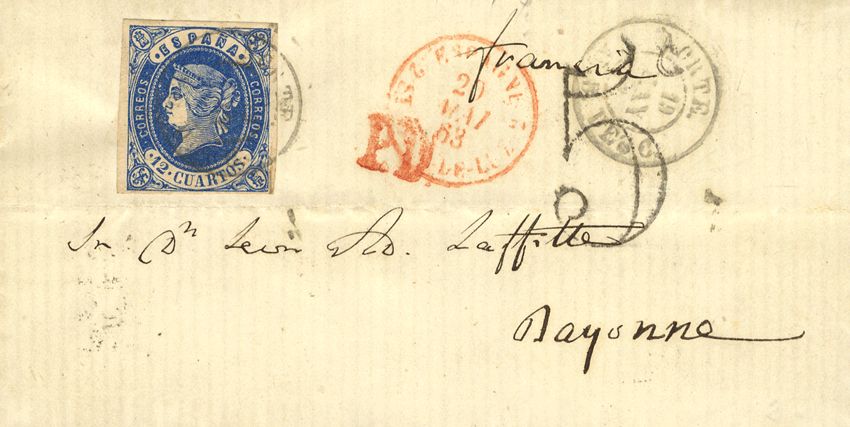 ESPAÑA
CORREOS
CORREOS
12 CUARTOS
Francia
20
MAI
63
PD
NORTE
19
5
Sr Dn Leon Ad. Laffitte
Bayonne